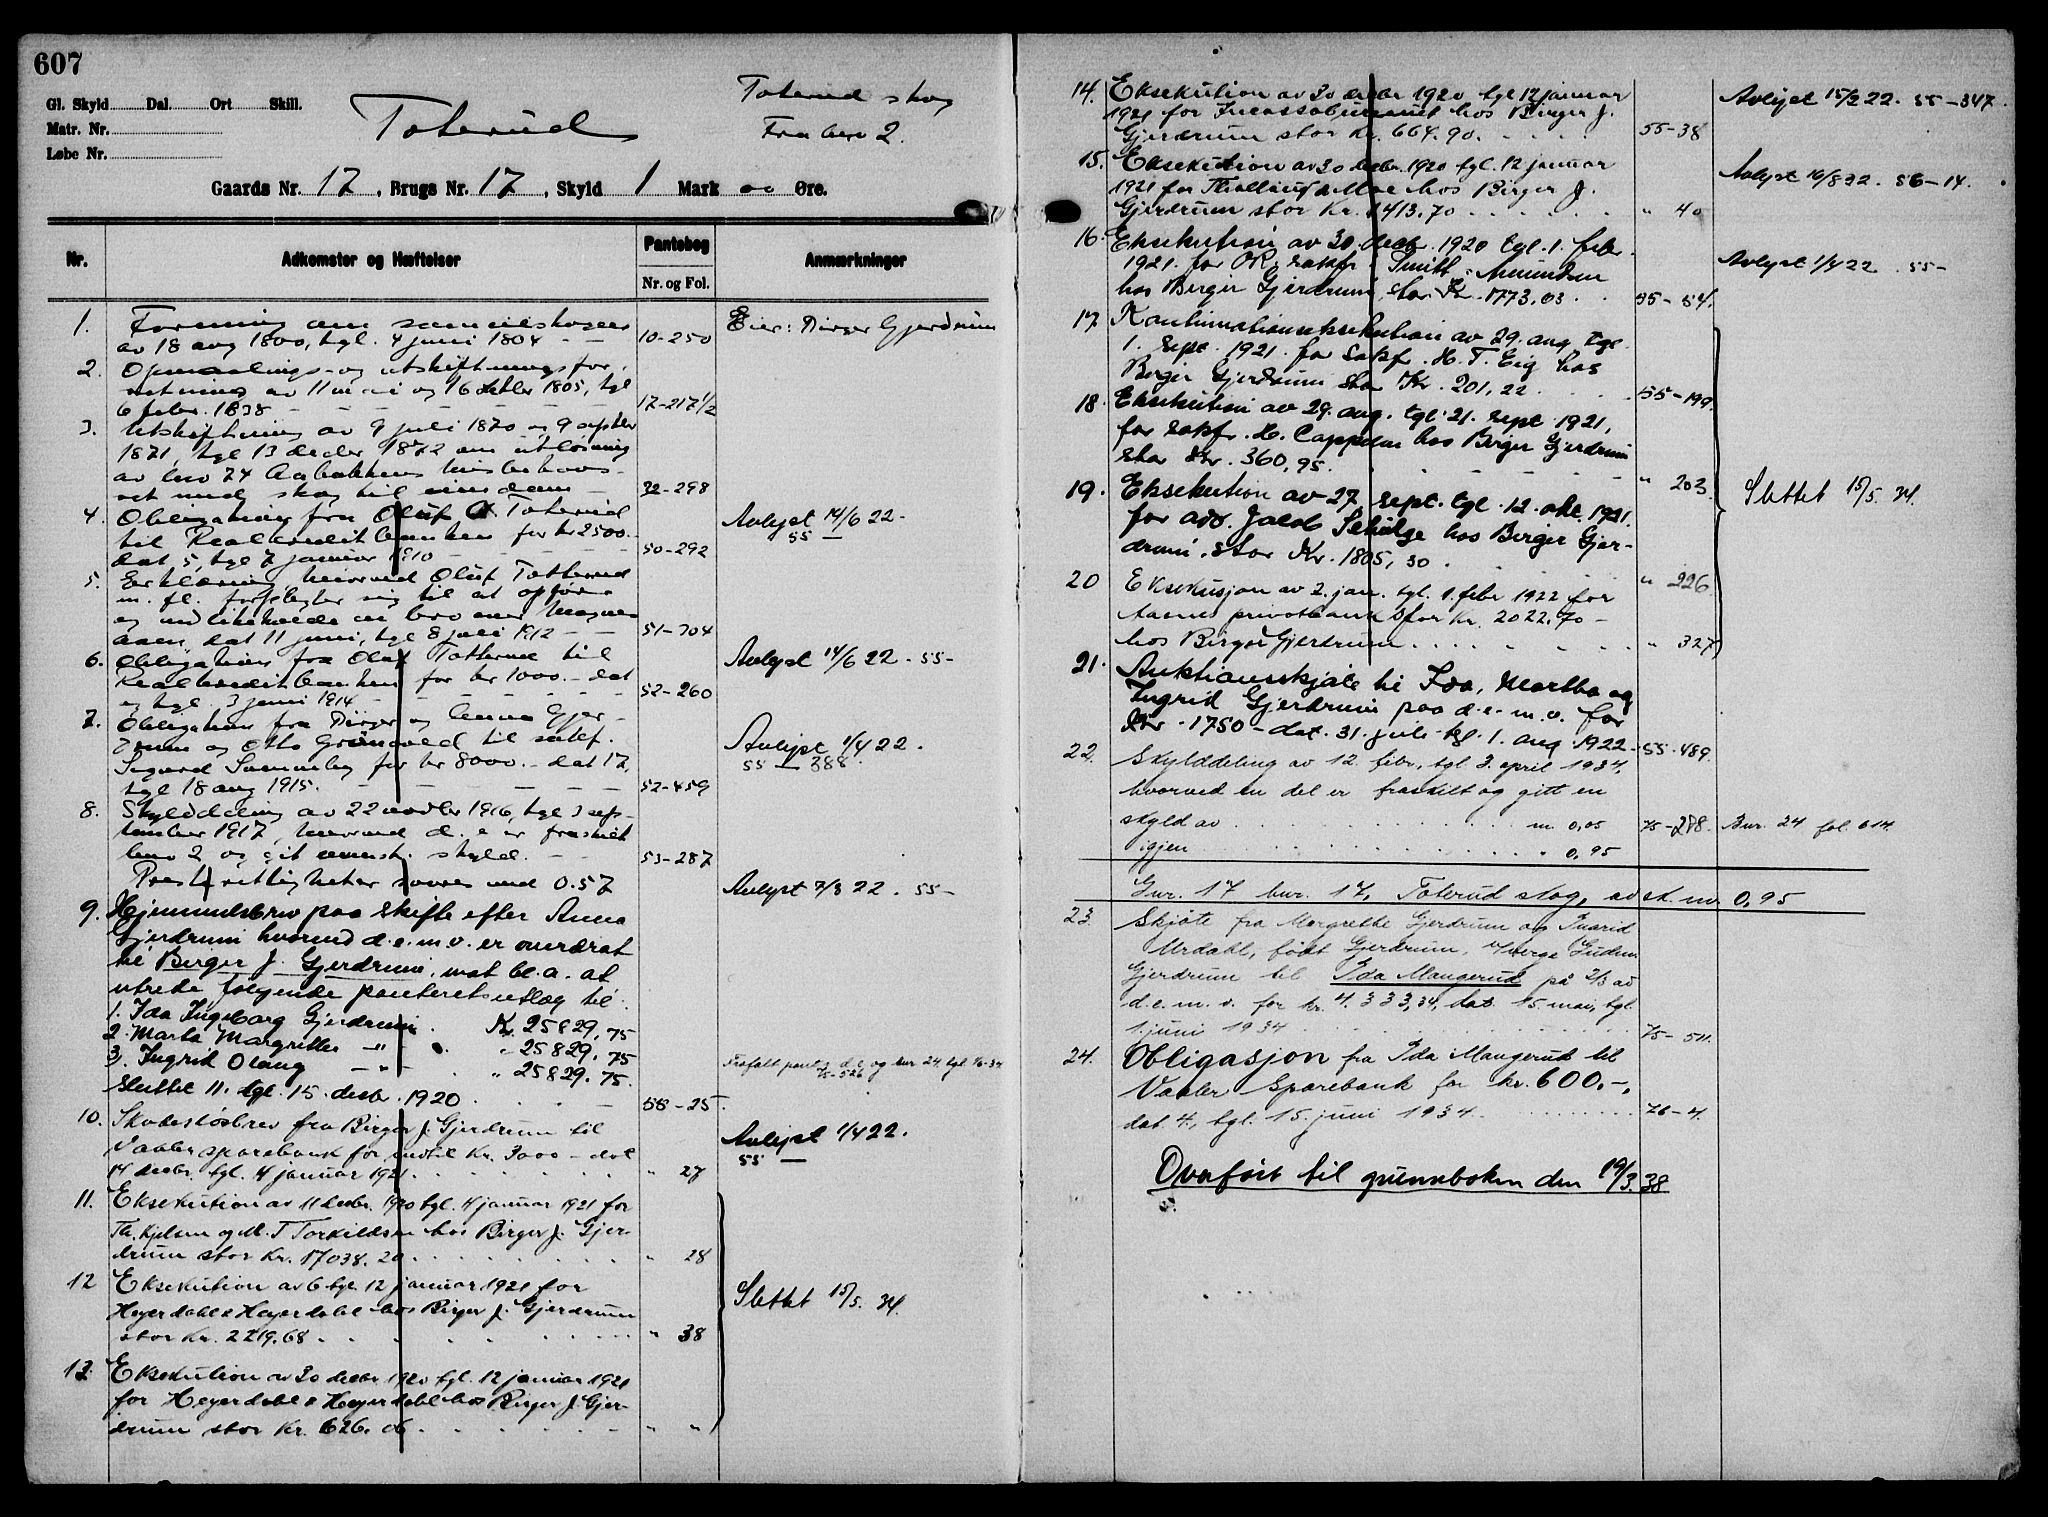 607
Gl. Skyld Dal. Ort Skill.
Matr. Nr.
Løbe Nr.
Toterud
Toterud skog
Fra bnr 2.
Gaards Nr. 17, Brugs Nr. 17, Skyld 1 Mark 00 Øre.
Nr. Adkomster og Hæftelser Pantebog Nr. og Fol. Anmærkninger
1. Forening om
av 18 aug 1800, tgl. 4 juni 1804 - - 10-250 Eier: Birger Gjerdrum
2. Opmaalings- og utskiftningsfor-
retning av 11 mai og 16 oktbr 1805, tgl
6 febr. 1838 - - - - 17-217 1/2
3. Utskiftning av 9 juli 1870 og 9 septbr
1871, tgl 13 decbr 1872 om utløsning
av bnr 24 Aabakkens
ret med skog til eiendom - 32-298
4. Obligation fra Oluf A. Toterud
til Realkreditbanken for kr 2500.-
dat 5, tgl 7 januar 1910 - - - - 50-292 Avlyst 14/6 22 - 55 —
5. Erklæring hvorved Oluf Totterud
m. fl. forpligter sig til at opføre
og vedlikeholde en bro over
aaen, dat 11 juni, tgl 8 juli 1912 - - 51-704
6. Obligation fra Oluf Totterud til
Realkreditbanken for kr 1000.- dat
og tgl. 3 juni 1914 - - - - 52-260 Avlyst 14/6 22 - 55-
7. Obligation fra Birger og Anna Gjer-
drum og Otto Grönvold til sakf.
Sigurd for kr 8000.- dat 17,
tgl 18 aug 1915. - - - - 52-459 Avlyst 1/4 22. 55 — 388.
8. Skylddeling av 22 novbr 1916, tgl 3 sep-
tember 1917, hvorved d. e er fraskilt
bnr 2 og git anverst. skyld. - - 53-287
Presterettigheter svares med 0.57 Avlyst 7/3 22. 55-
9. Hjemmelsbrev paa skifte efter Anna
Gjerdrum hvorved d.e.m.v. er overdrat
til Berger J. Gjerdrum, mot bl.a. at
utrede følgende panteretsutlæg til:
1. Ida Ingeborg Gjerdrum. Kr. 25829.75
2. Marta Margrethe - " - . " 25829.75
3. Ingrid Olaug - " - . " 25829.75.
sluttet 11. tgl. 15. desbr. 1920 58-25. Frafalt pant i d.e. og bnr 24. tgl 1/6-34 75-526
10. Skadesløsbrev fra Birger J. Gjerdrum til
Vaaler sparebank for indtil Kr. 3000 - dat
14 decbr. tgl. 4 januar 1921. " 27 Avlyst 1/4 22. 55 —
11. Eksekution av 11 decbr. 1920 tgl. 4 januar 1921 for
Th. Kjelsen og M. T Torkildsen hos Birger J. Gjer-
drum stor Kr. 17038.20 " 28
12 Eksekution av 6 tgl. 12 januar 1921 for
Heyerdahl & Heyerdahl hos Birger J. Gjerdrum
stor Kr. 2219.68 " 38 Slettet 15/5. 34.
13. Eksekution av 30 decbr. 1920 tgl. 12 januar 1921
for Heyerdahl & Heyerdahl hos Birger J. Gjer-
drum stor Kr. 626.06 " "
14. Eksekution av 30 decbr 1920 tgl 12 januar
1921 for Incassobureauet hos Birger J.
Gjerdrum stor Kr. 664.90. 55-38 Avlyst 15/2 22. 55-347.
15. Eksekution av 30 decbr. 1920 tgl. 12 januar
1921 for & Moe hos Birger J.
Gjerdrum stor Kr. 1413.70 " 40 Avlyst 16/8 22. 56-14.
16. Eksekution av 30. decbr. 1920 tgl. 1. febr.
1921. for OR. sakfr. Smitt Amundsen
hos Berger Gjerdrum, stor Kr. 1773.03. 55-54. Avlyst 1/4 22. 55-
17 Kontinuationseksekution av 29. aug. tgl.
1. sept. 1921. for sakfr. H. T. Eig hos
Berger Gjerdrum stor Kr. 201,22 55-199.
18. Eksekution av 29. aug. tgl. 21. sept 1921,
for sakfr. H. Cappelen hos Berger Gjerdrum
stor Kr. 360,95. " 203. Slettet 15/5. 34.
19. Eksekution av 27. sept. tgl. 12. okt. 1921.
for adv. Jacob hos Berger Gjer-
drum. stor Kr. 1805,30. " 226
20 Eksekusjon av 2. jan. tgl. 1. febr 1922 for
Aasnes privatbank stor Kr. 2022.70 -
hos Birger Gjerdrum " 327
21. Auktionsskjøte til Ida, Martha og
Ingrid Gjerdrum paa d.e.m.v. for
Kr. 1750 - dat. 31. juli tgl. 1. aug. 1922 - 55-489.
22. Skylddeling av 12. febr, tgl. 3. april 1934,
hvorved en del er fraskilt og gitt en
skyld av m. 0,05 75-288. Bnr. 24 fol. 614.
igjen " 0,95
Gnr. 17 bnr. 17, Toterud skog, av sk. m. 0,95
23. Skjøte fra Margrethe Gjerdrum og Ingrid
Urdahl, født Gjerdrum, verge Gudm.
Gjerdrum til Ida Maugerud på 2/3 av
d.e.m.v. for kr. 4.333,34, dat. 15. mai, tgl.
1. juni 1934 75-511.
24. Obligasjon fra Ida Maugerud til
Vaaler Sparebank for kr. 600.-,
dat 4., tgl. 15. juni 1934. 76-4.
Overført til grunnboken den 19/3. 38